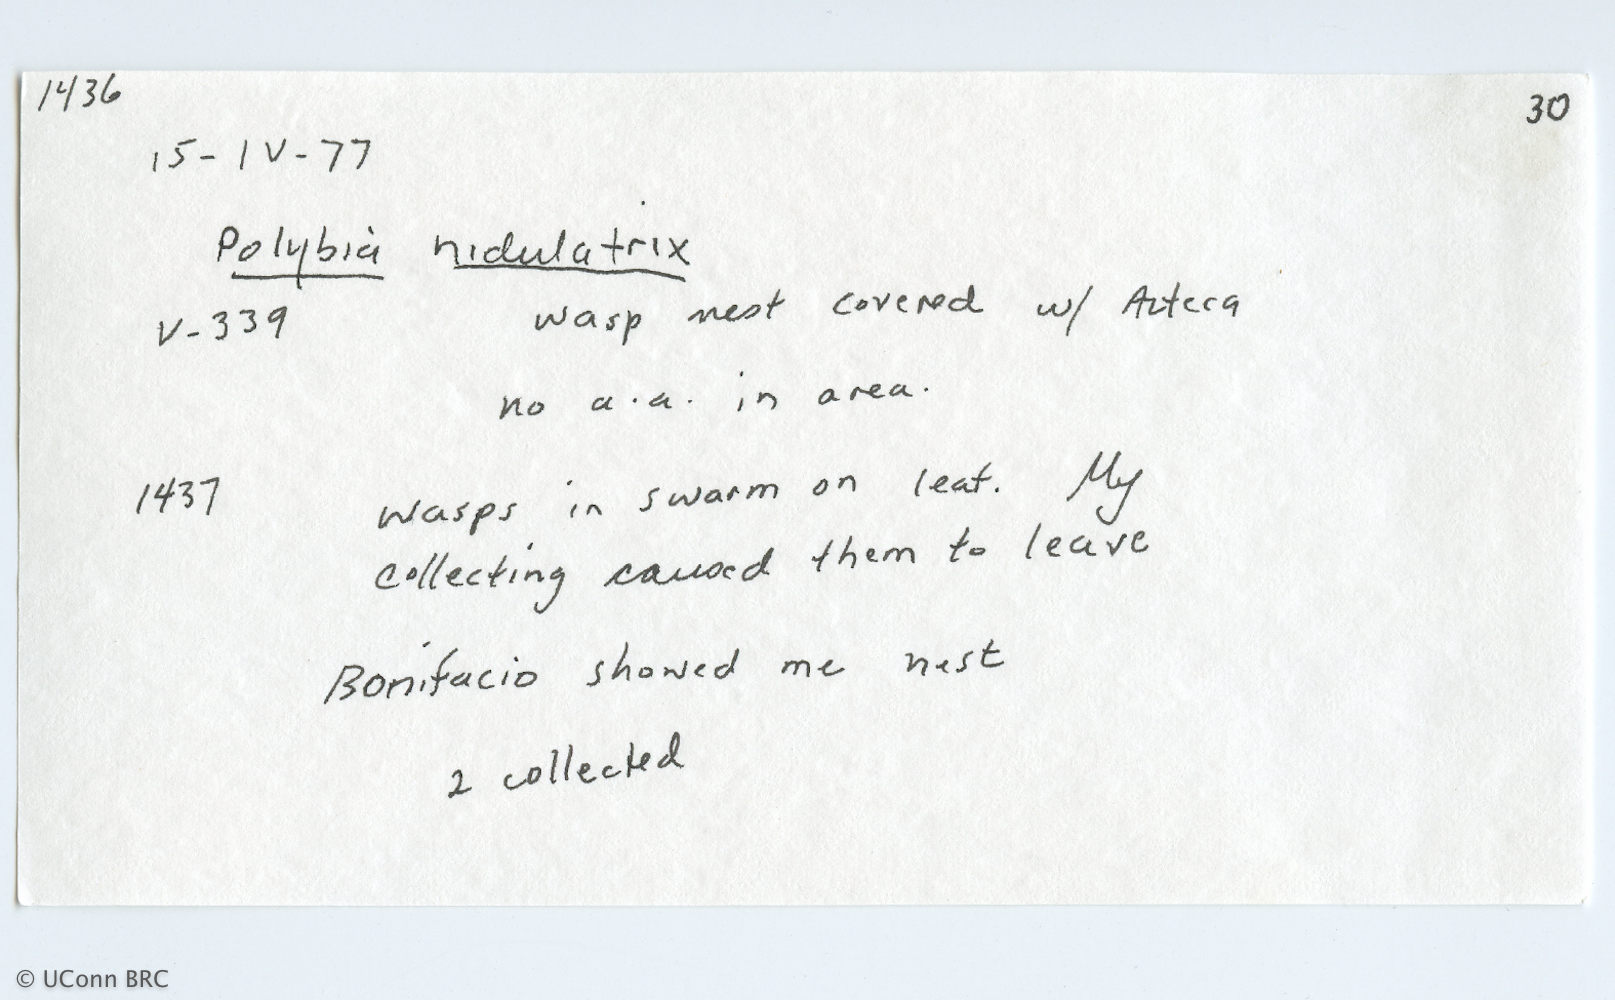 1436
30
15-IV-77
Polybia nidulatrix
V-339 wasp nest covered w/ Azteca
no a.a. in area.
1437 wasps in swarm on leaf. My
collecting caused them to leave
Bonifacio showed me nest
2 collected
© UConn BRC